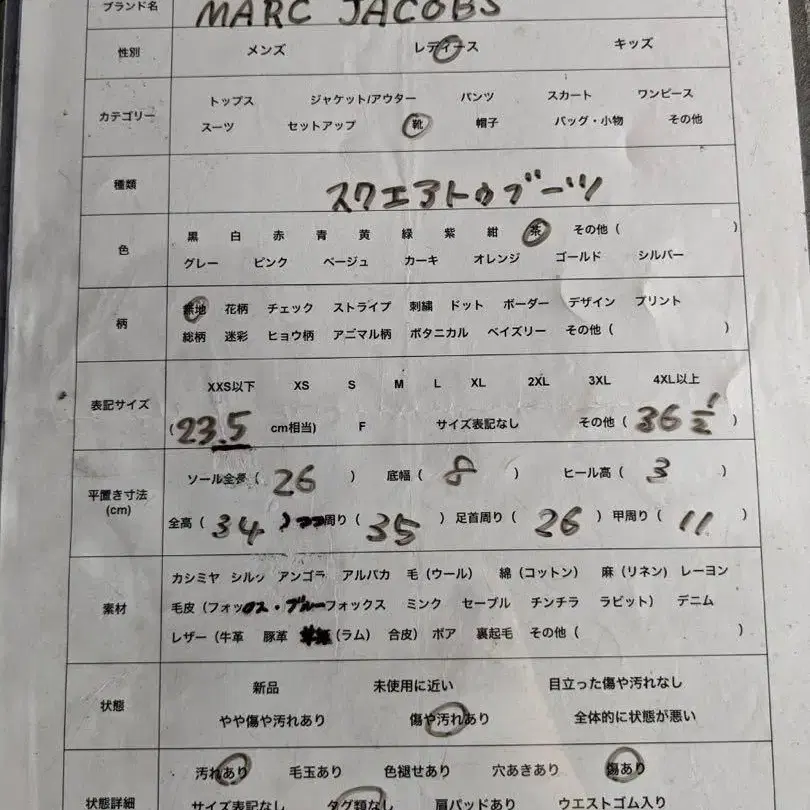 ブランド名 MARC JACOBS
性別 メンズ レディース キッズ
カテゴリー
トップス ジャケット/アウター パンツ スカート ワンピース
スーツ セットアップ 靴 帽子 バッグ・小物 その他
種類 スクエアトゥブーツ
色
黒 白 赤 青 黄 緑 紫 紺 茶 その他 ( )
グレー ピンク ベージュ カーキ オレンジ ゴールド シルバー
柄
無地 花柄 チェック ストライプ 刺繍 ドット ボーダー デザイン プリント
総柄 迷彩 ヒョウ柄 アニマル柄 ボタニカル ペイズリー その他 ( )
表記サイズ
XXS以下 XS S M L XL 2XL 3XL 4XL以上
(23.5 cm相当) F サイズ表記なし その他 ( 36 1/2 )
平置き寸法
(cm)
ソール全長 ( 26 ) 底幅 ( 8 ) ヒール高 ( 3 )
全高 ( 34 ) 周り ( 35 ) 足首周り ( 26 ) 甲周り ( 11 )
素材
カシミヤ シルク アンゴラ アルパカ 毛 (ウール) 綿 (コットン) 麻 (リネン) レーヨン
毛皮 (フォックス・ブルーフォックス ミンク セーブル チンチラ ラビット) デニム
レザー (牛革 豚革 (ラム) 合皮) ボア 裏起毛 その他 ( )
状態
新品 未使用に近い 目立った傷や汚れなし
やや傷や汚れあり 傷や汚れあり 全体的に状態が悪い
状態詳細
汚れあり 毛玉あり 色褪せあり 穴あきあり 傷あり
サイズ表記なし タグ類なし 肩パッドあり ウエストゴム入り